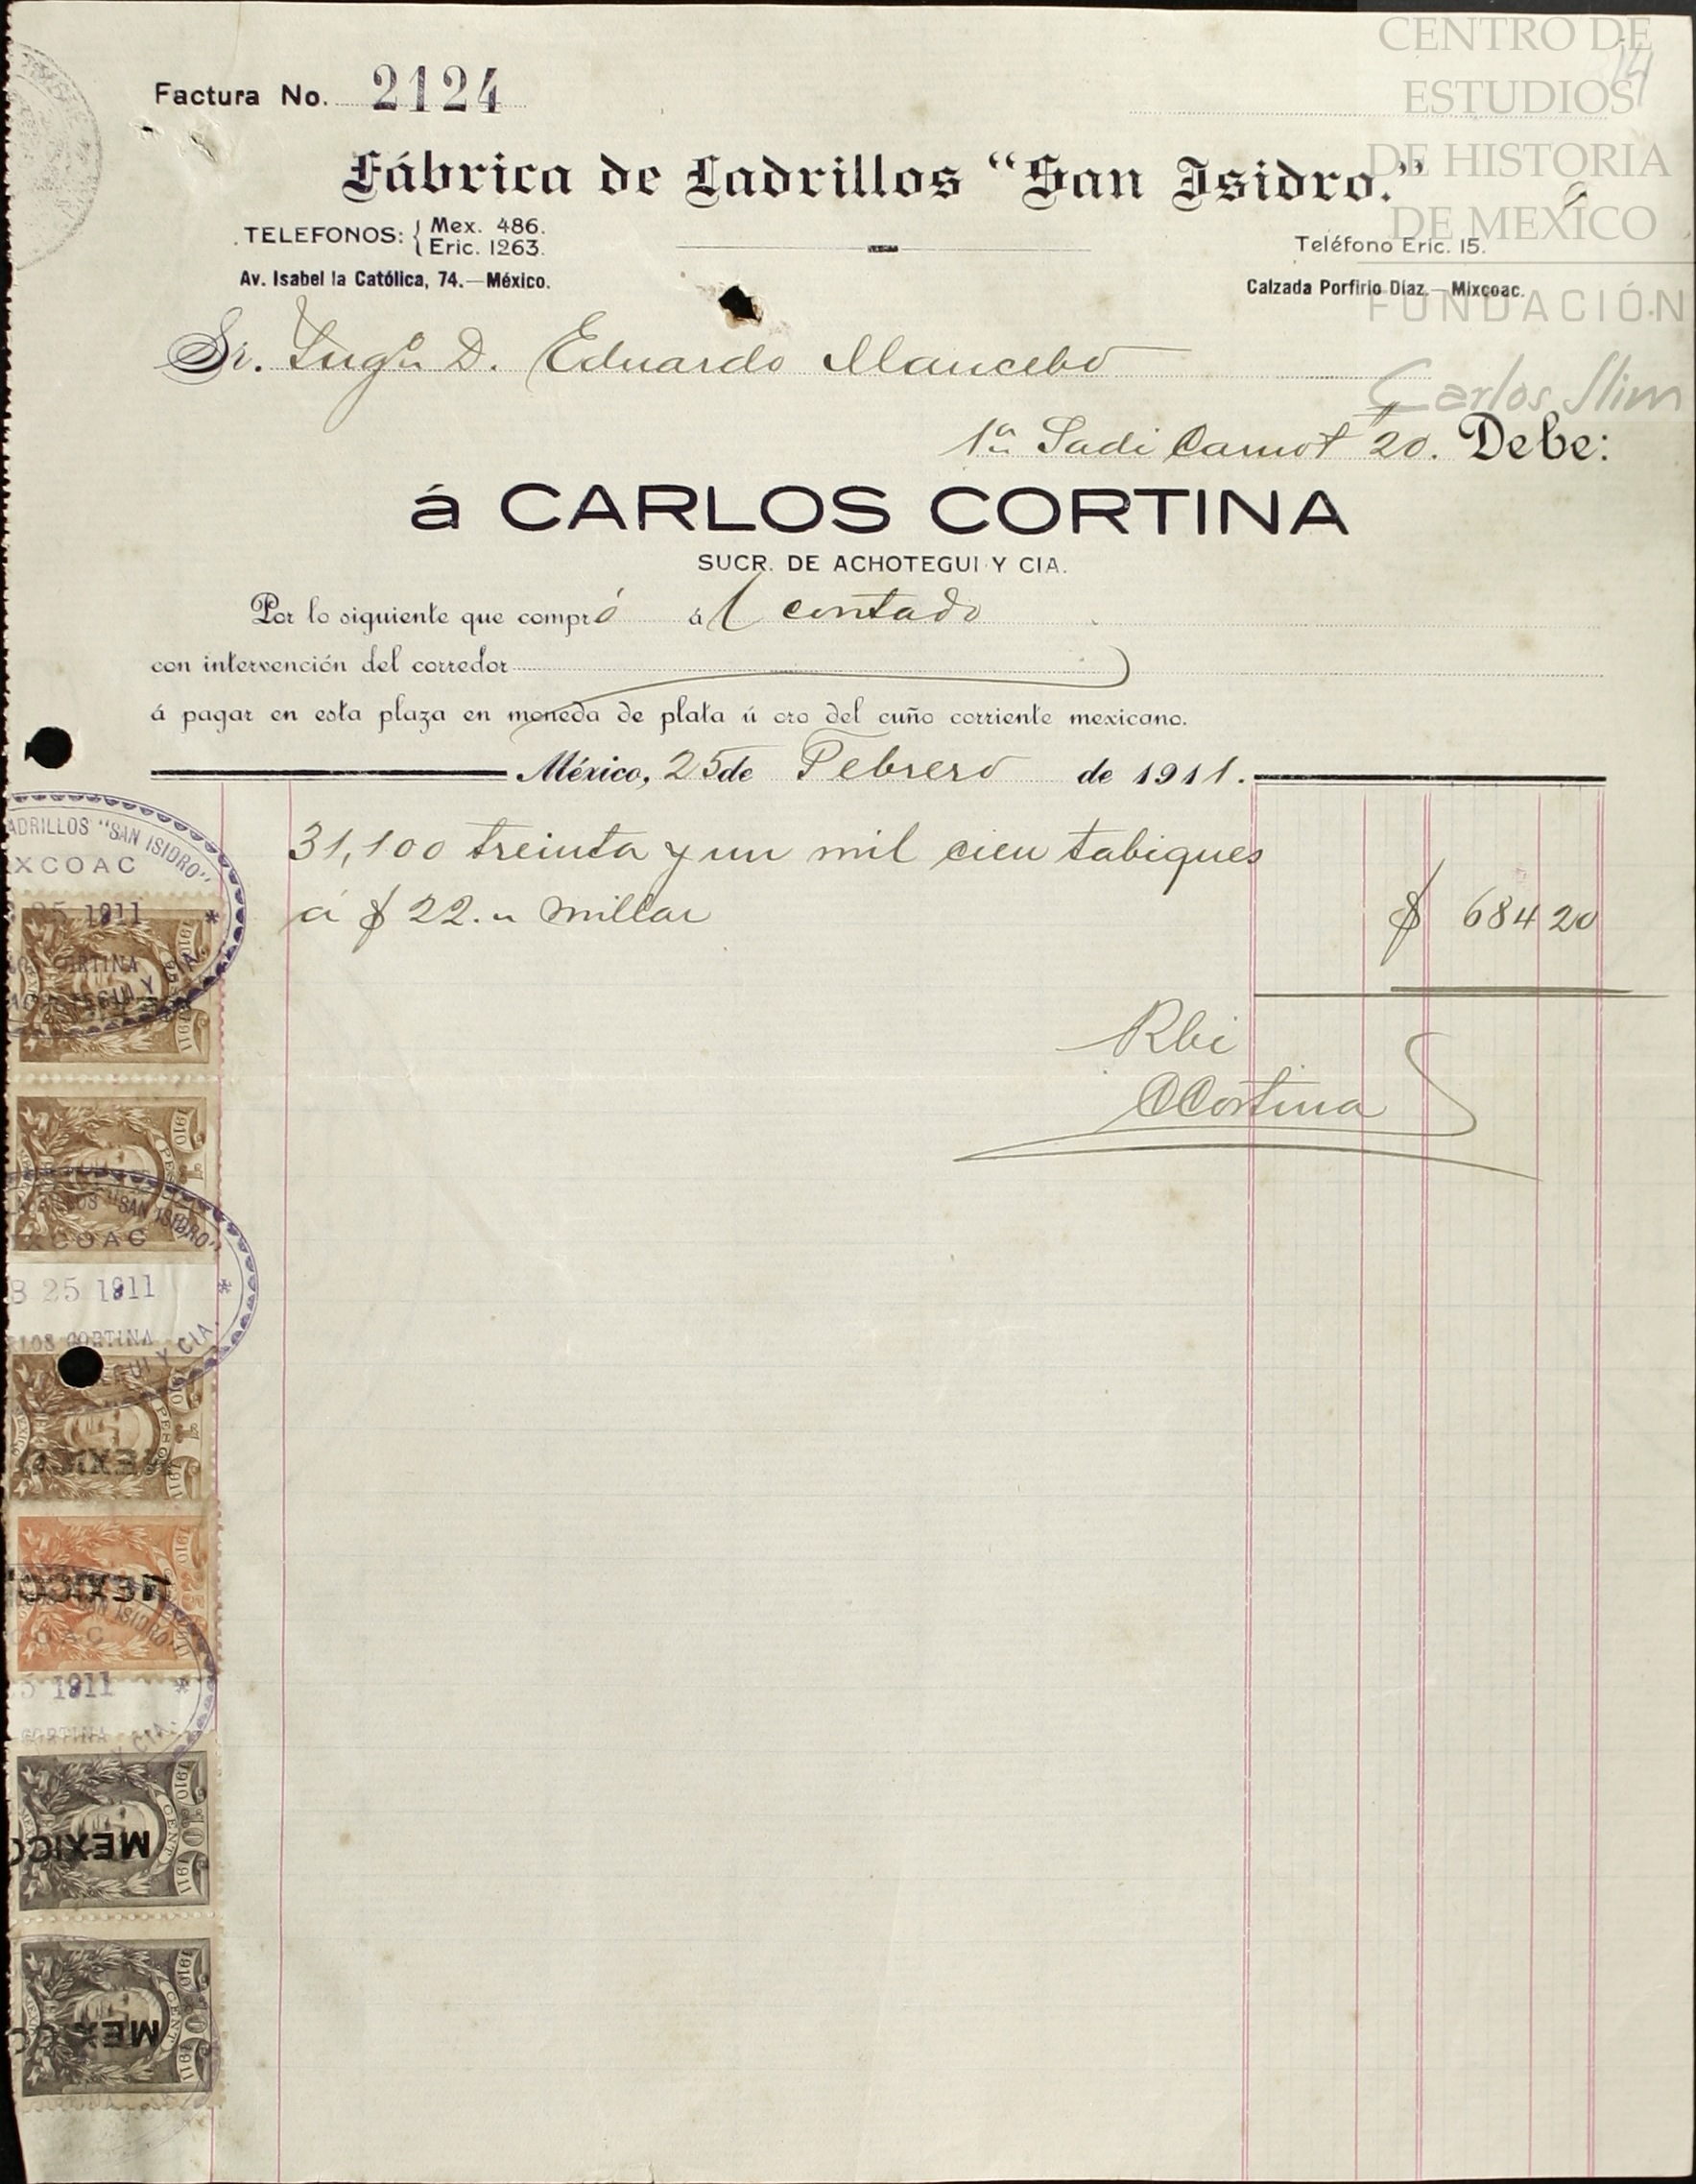 CENTRO DE
ESTUDIOS
DE HISTORIA
DE MEXICO
FUNDACIÓN
Carlos Slim
14
Factura No. 2124
Fábrica de Ladrillos "San Isidro."
TELEFONOS: { Mex. 486.
Eric. 1263.
Av. Isabel la Católica, 74.—México.
Teléfono Eric. 15.
Calzada Porfirio Diaz.—Mixcoac.
Sr. Ingo. D. Eduardo Mancebo
1a Sadi Carnot #20. Debe:
á CARLOS CORTINA
SUCR. DE ACHOTEGUI Y CIA.
Por lo siguiente que compró ál contado
con intervención del corredor
á pagar en esta plaza en moneda de plata ú oro del cuño corriente mexicano.
México, 25 de Febrero de 1911.
31,100 treinta y un mil cien tabiques
á $ 22.„ millar $ 684 20
Rbi
CCortina
ADRILLOS "SAN ISIDRO"
XCOAC
25 1911
CORTINA
Y CIA.
1910
1911
1910
PESO
"SAN ISIDRO"
XCOAC
B 25 1911
RLOS CORTINA
GUI Y CIA.
1910
PESO
1911
MEXICO
1910
MEXICO
SAN ISIDRO"
OAC
1911
5 1911
CORTINA
CIA.
1910
10
CENT
1911
MEXICO
1910
10
CENT
1911
MEXICO